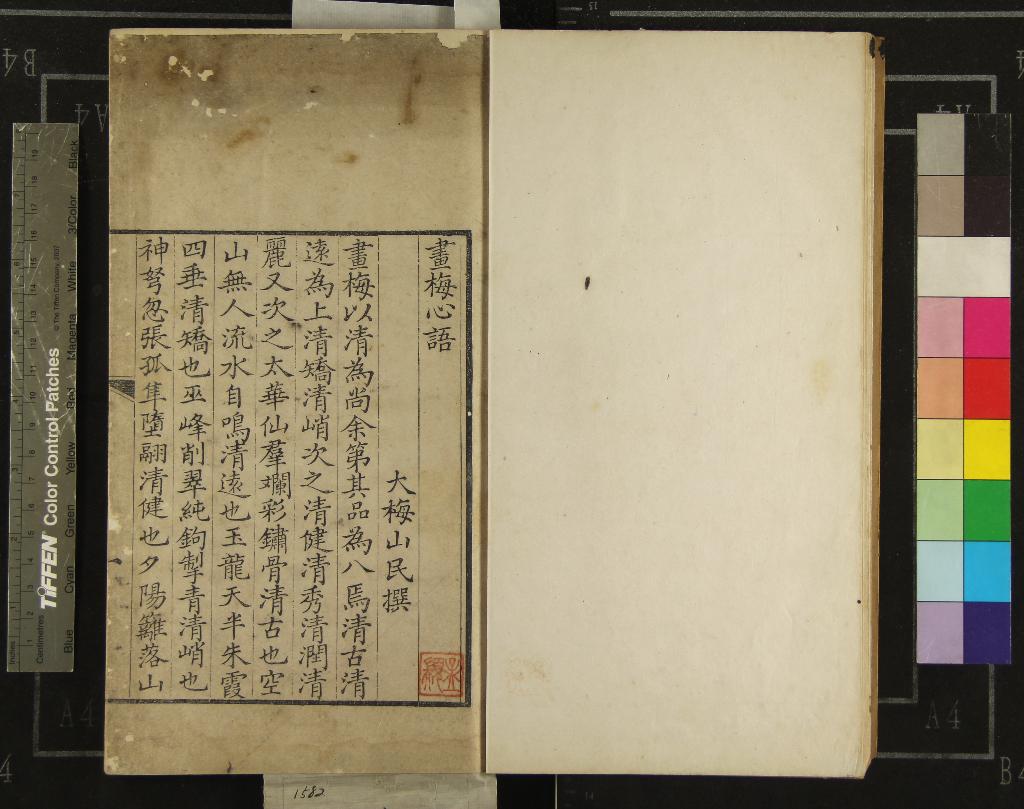 畫梅心語
大梅山民撰
畫梅以清為尚余第其品為八焉清古清
遠為上清矯清峭次之清健清秀清潤清
麗又次之太華仙羣斕彩鏽骨清古也空
山無人流水自鳴清遠也玉龍天半朱霞
四垂清矯也巫峰削翠純鉤掣青清峭也
神弩忽張孤隼墮翮清健也夕陽籬落山
TIFFEN Color Control Patches
© The Tiffen Company, 2007
Blue Cyan Green Yellow Red Magenta White 3/Color Black
Inches
Centimetres
1582
B4
A4
A4
A4
A4
B4